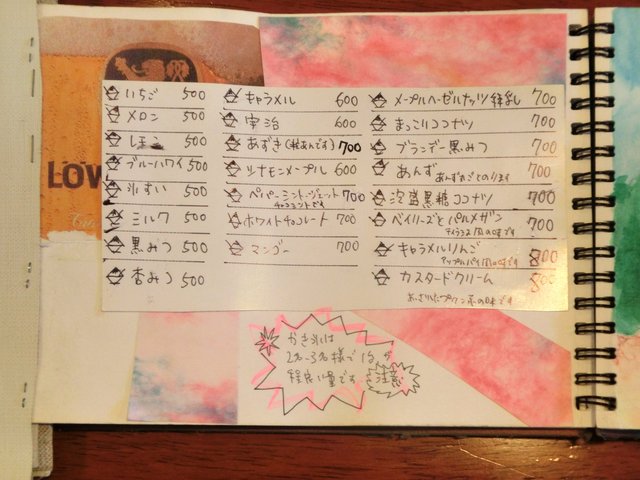 LOW
いちご 500
メロン 500
レモン 500
ブルーハワイ 500
氷すい 500
ミルク 500
黒みつ 500
杏みつ 500
キャラメル 600
宇治 600
あずき(粒あんです) 700
シナモンメープル 600
ペパーミントジェット 700
チョコミントです
ホワイトチョコレート 700
マンゴー 700
メープルヘーゼルナッツ 700
まっこりココナツ 700
ブランデー黒みつ 700
あんず 700
泡盛黒糖ココナツ 700
ベイリーズとパルメザン 700
ティラミス風の味です
キャラメルりんご 800
アップルパイ風の味です
カスタードクリーム 800
かき氷は
2名〜3名様で1台が
程良い量です
注意